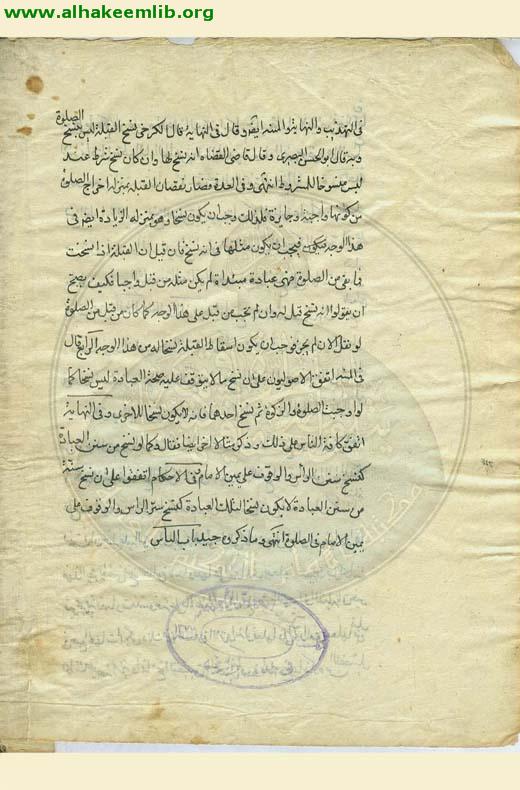 www.alhakeemlib.org
فى التهذيب والنهاية والمنية ايضا وقال فى النهاية قال الكرخى نسخ القبلة ليس بنسخ الصلوة
وبه قال ابو الحسين البصرى وقال قاضى القضاه انه نسخ لها وان كان نسخ شرط عند
ليس منسوخا للمشروط انتهى وفى العدة فصار نقصان القبلة بمنزلة اخراج الصلوة
من كونها واجبة وجايزة فلذلك وجب ان يكون نسخا وهو بمنزلة الزيادة ايضا فى
هذا الوجه فيجب ان يكون مثلها فى انه نسخ فان قيل ان القبلة اذا نسخت
فما بقى من الصلوة فهى عبادة مبتداة لم يكن مثله من قبل واجبا فكيف يصح
ان يقولوا انه نسخ قيل له وان لم يجب من قبل على هذا الوجه كما كان من قبل من الصلوة
لو فعل الان لم يجز فوجب ان يكون اسقاط القبلة نسخا له من هذا الوجه الرابع قال
فى المنية اتفق الاصوليون على ان نسخ ما لا يتوقف عليه صحة العبادة ليس نسخا لها كما
لو اوجبت الصلوة والزكوة ثم نسخ احدهما فانه لا يكون نسخا للاخرى وفى النهاية
اتفق كافة الناس على ذلك وذكر مثالا اخر ايضا فقال وكما لو نسخ من سنن العبادة
كنسخ ستر الراس والوقوف على يمين الامام وفى الاحكام اتفقوا على ان نسخ سنة
من سنن العبادة لا يكون نسخا لتلك العبادة كنسخ ستر الراس والوقوف على
يمين الامام فى الصلوة انتهى وما ذكروه جيد